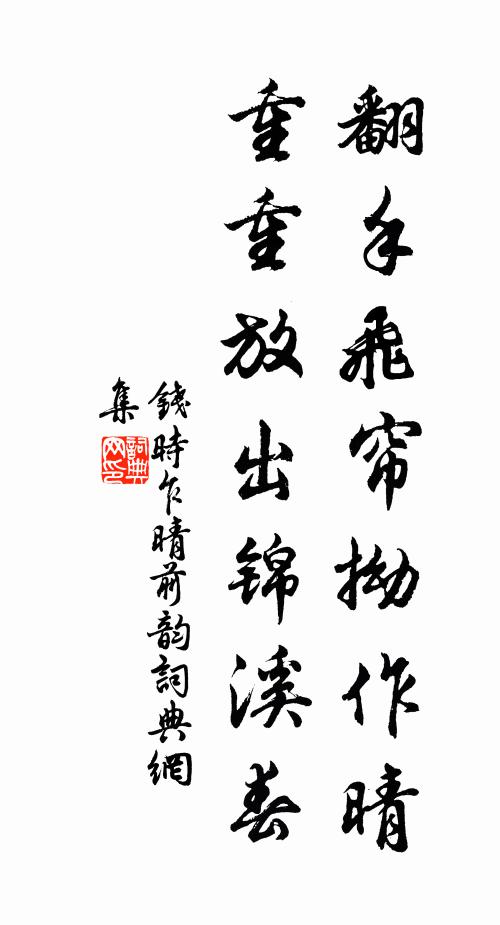 翻手飛帘拗作晴
重重放出錦溪春
錢時乍晴前韵詞典網
集
詞典網印